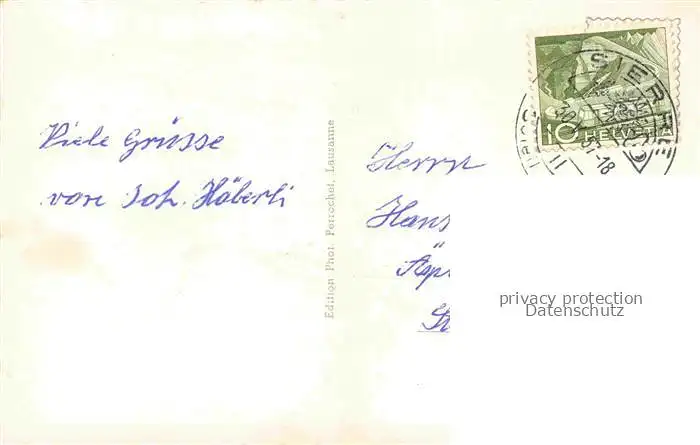 Viele Grüsse
von Joh. Häberli
Edition Phot. Perrochet, Lausanne
Herrn
Hans
10 HELVETIA
SIERRE
privacy protection
Datenschutz